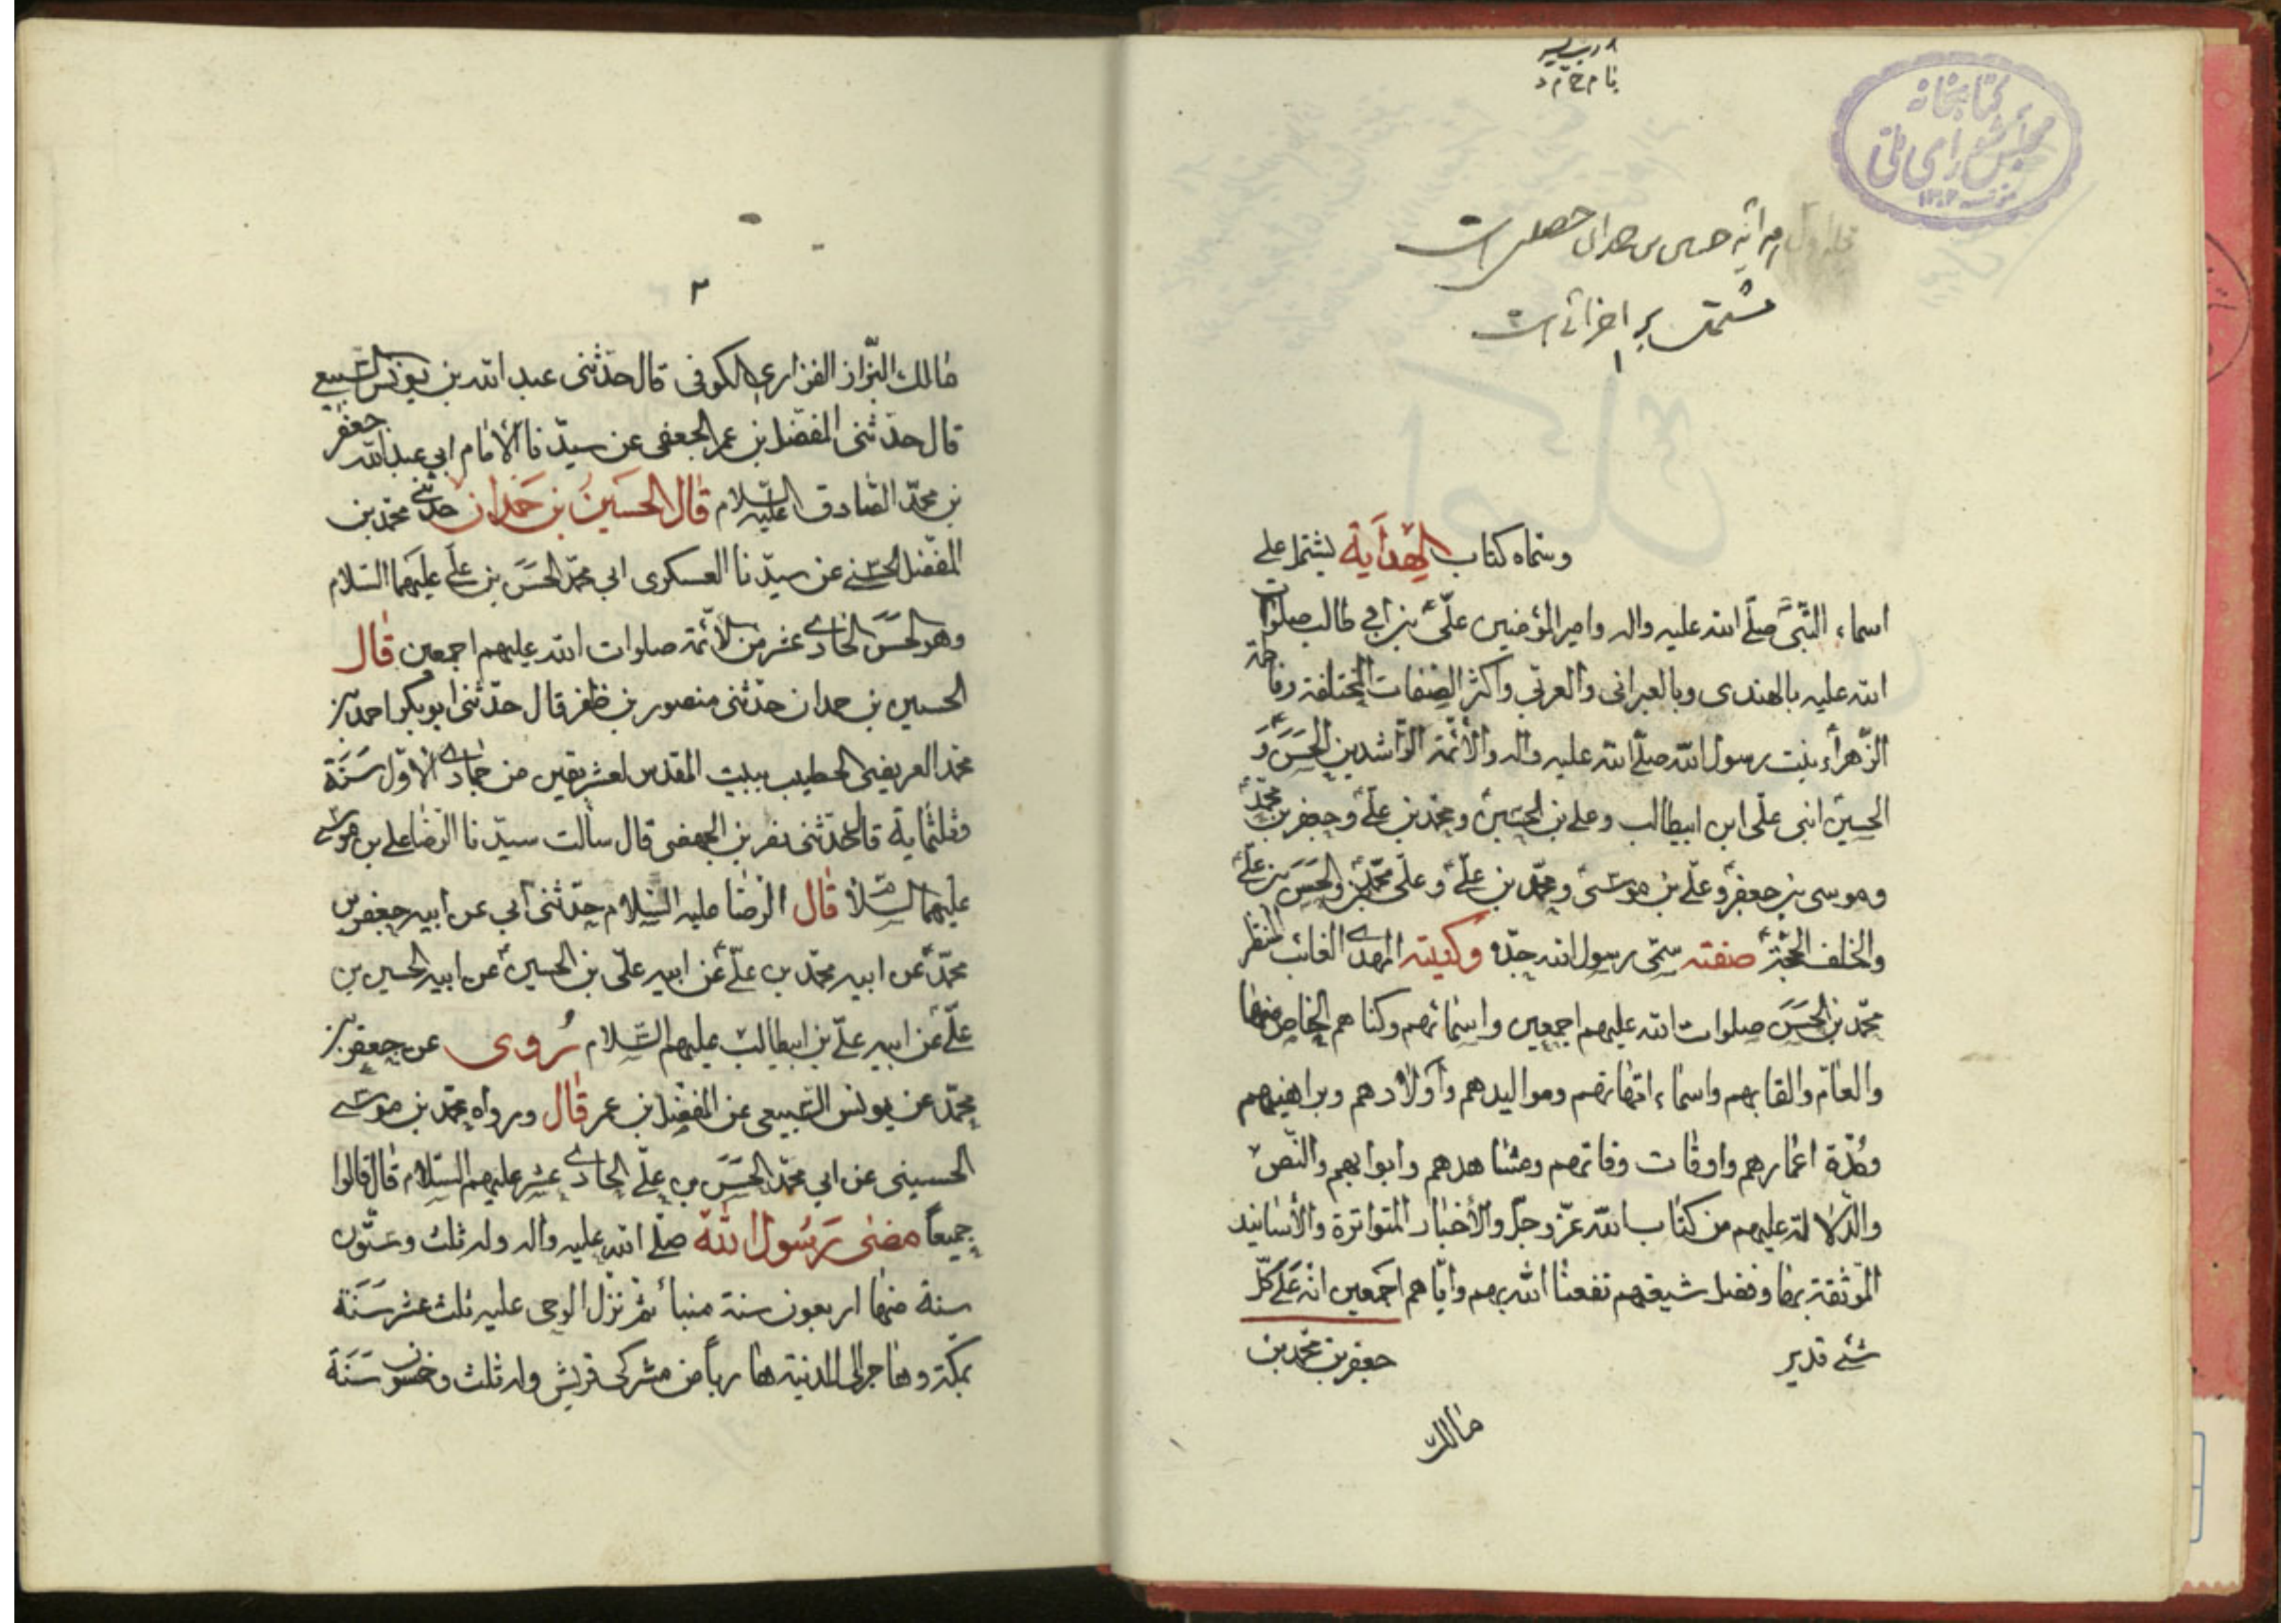 کتابخانه
مجلس شورای ملی
بر اجزائی است
١
وسماه كتاب الهداية يشتمل على
اسماء النبي صلى الله عليه واله وامير المؤمنين علي بن ابي طالب صلوات
الله عليه بالهندى وبالعبرانى والعربي واكثر الصفات المختلفة وفاطمة
الزهراء بنت رسول الله صلى الله عليه واله والأئمة الراشدين الحسن و
الحسين ابنى علي ابن ابيطالب وعلي بن الحسين ومحمد بن علي وجعفر بن محمد
وموسى بن جعفر وعلي بن موسى ومحمد بن علي وعلي بن محمد والحسن بن علي
والخلف الحجة صفته سمي رسول الله جده وكنيته المهدي الغائب المنتظر
محمد بن الحسن صلوات الله عليهم اجمعين واسمائهم وكناهم الخاص منها
والعام والقابهم واسماء امهاتهم ومواليدهم واولادهم وبراهينهم
ومدة اعمارهم واوقات وفاتهم ومشاهدهم وابوابهم والنص
والدلالة عليهم من كتاب الله عز وجل والأخبار المتواترة والأسانيد
الموثقة بها وفضل شيعتهم نفعنا الله بهم واياهم اجمعين انه على كل
شئ قدير جعفر بن محمد بن
مالك
٢
مالك البزاز الفزاري الكوفى قال حدثنى عبد الله بن يونس السبيعي
قال حدثنى المفضل بن عمر الجعفى عن سيدنا الأمام ابي عبد الله جعفر
بن محمد الصادق عليه السلام قال الحسين بن حمدان حدثني محمد بن
المفضل الحسني عن سيدنا العسكرى ابي محمد الحسن بن علي عليهما السلام
وهو الحسن الحادي عشر من الأئمة صلوات الله عليهم اجمعين قال
الحسين بن حمدان حدثنى منصور بن ظفر قال حدثنى ابو بكر احمد بن
محمد العريضى الخطيب ببيت المقدس لعشر بقين من جمادي الأول سنة
وثلثمأية قال حدثنى نصر بن الجهضمى قال سألت سيدنا الرضا علي بن موسى
عليهما السلام قال الرضا عليه السلام حدثنى ابي عن ابيه جعفر بن
محمد عن ابيه محمد بن علي عن ابيه علي بن الحسين عن ابيه الحسين بن
علي عن ابيه علي بن ابيطالب عليهم السلام روى عن جعفر بن
محمد عن يونس السبيعى عن المفضل بن عمر قال ورواه محمد بن موسى
الحسينى عن ابي محمد الحسن بن علي الحادي عشر عليهم السلام قال قالوا
جميعاً مضى رسول الله صلى الله عليه واله وله ثلث وستون
سنة منها اربعون سنة منبأ ثم نزل الوحى عليه ثلث عشر سنة
بمكة وهاجر الى المدنية هارباً من مشركى قريش وله ثلث وخمسون سنة